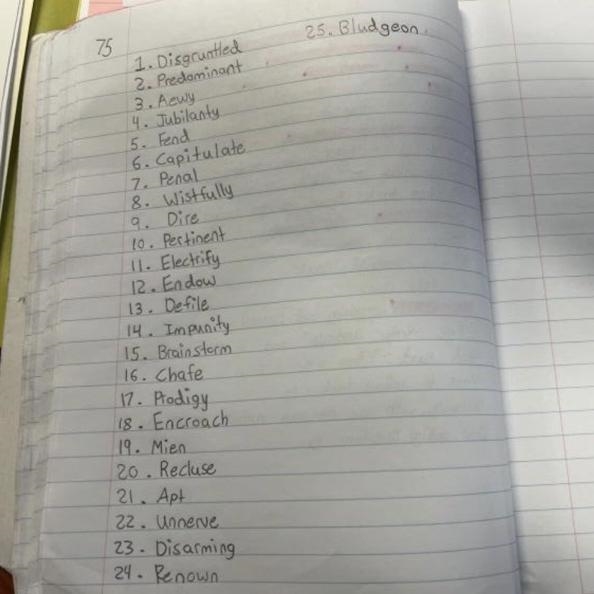 75
1. Disgruntled
2. Predominant
3. Aewy
4. Jubilanty
5. Fend
6. Capitulate
7. Penal
8. Wistfully
9. Dire
10. Pertinent
11. Electrify
12. Endow
13. Defile
14. Impunity
15. Brainstorm
16. Chafe
17. Prodigy
18. Encroach
19. Mien
20. Recluse
21. Apt
22. Unnerve
23. Disarming
24. Renown
25. Bludgeon